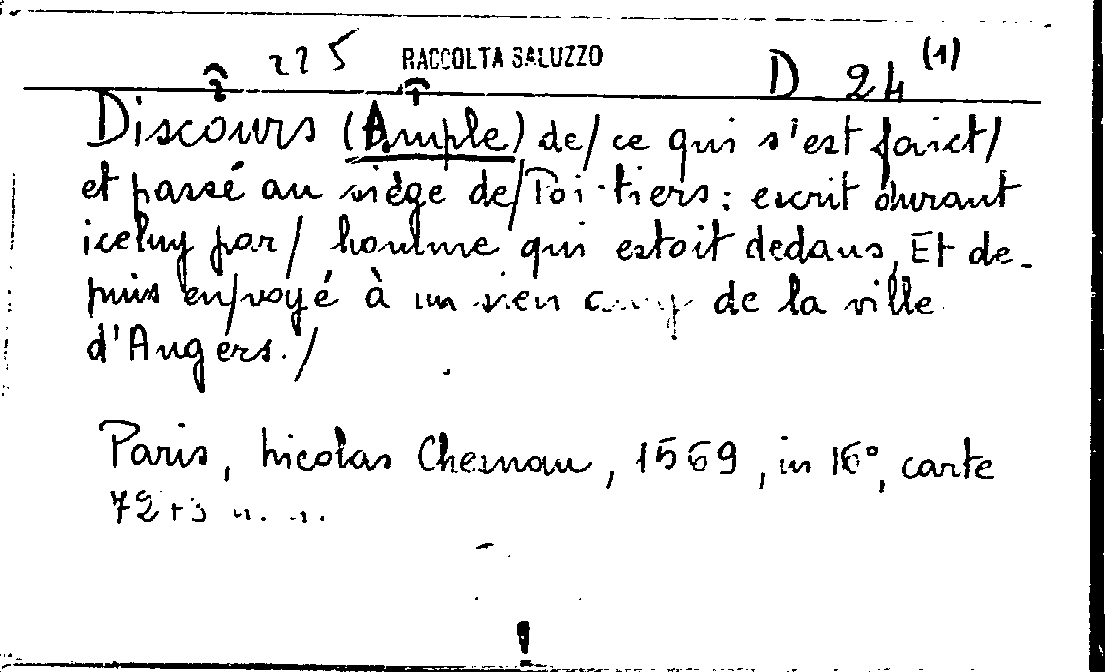 225 RACCOLTA SALUZZO D 24 (1)
2 1
Discours (Ample) de/ ce qui s'est faict/
et passé au siège de/Poi-tiers: escrit durant
iceluy par/ homme qui estoit dedans, Et de-
puis en/voyé à un sien de la ville
d'Angers./
Paris, Nicolas Chesnau, 1569, in 16°, carte
72+3 n. n.